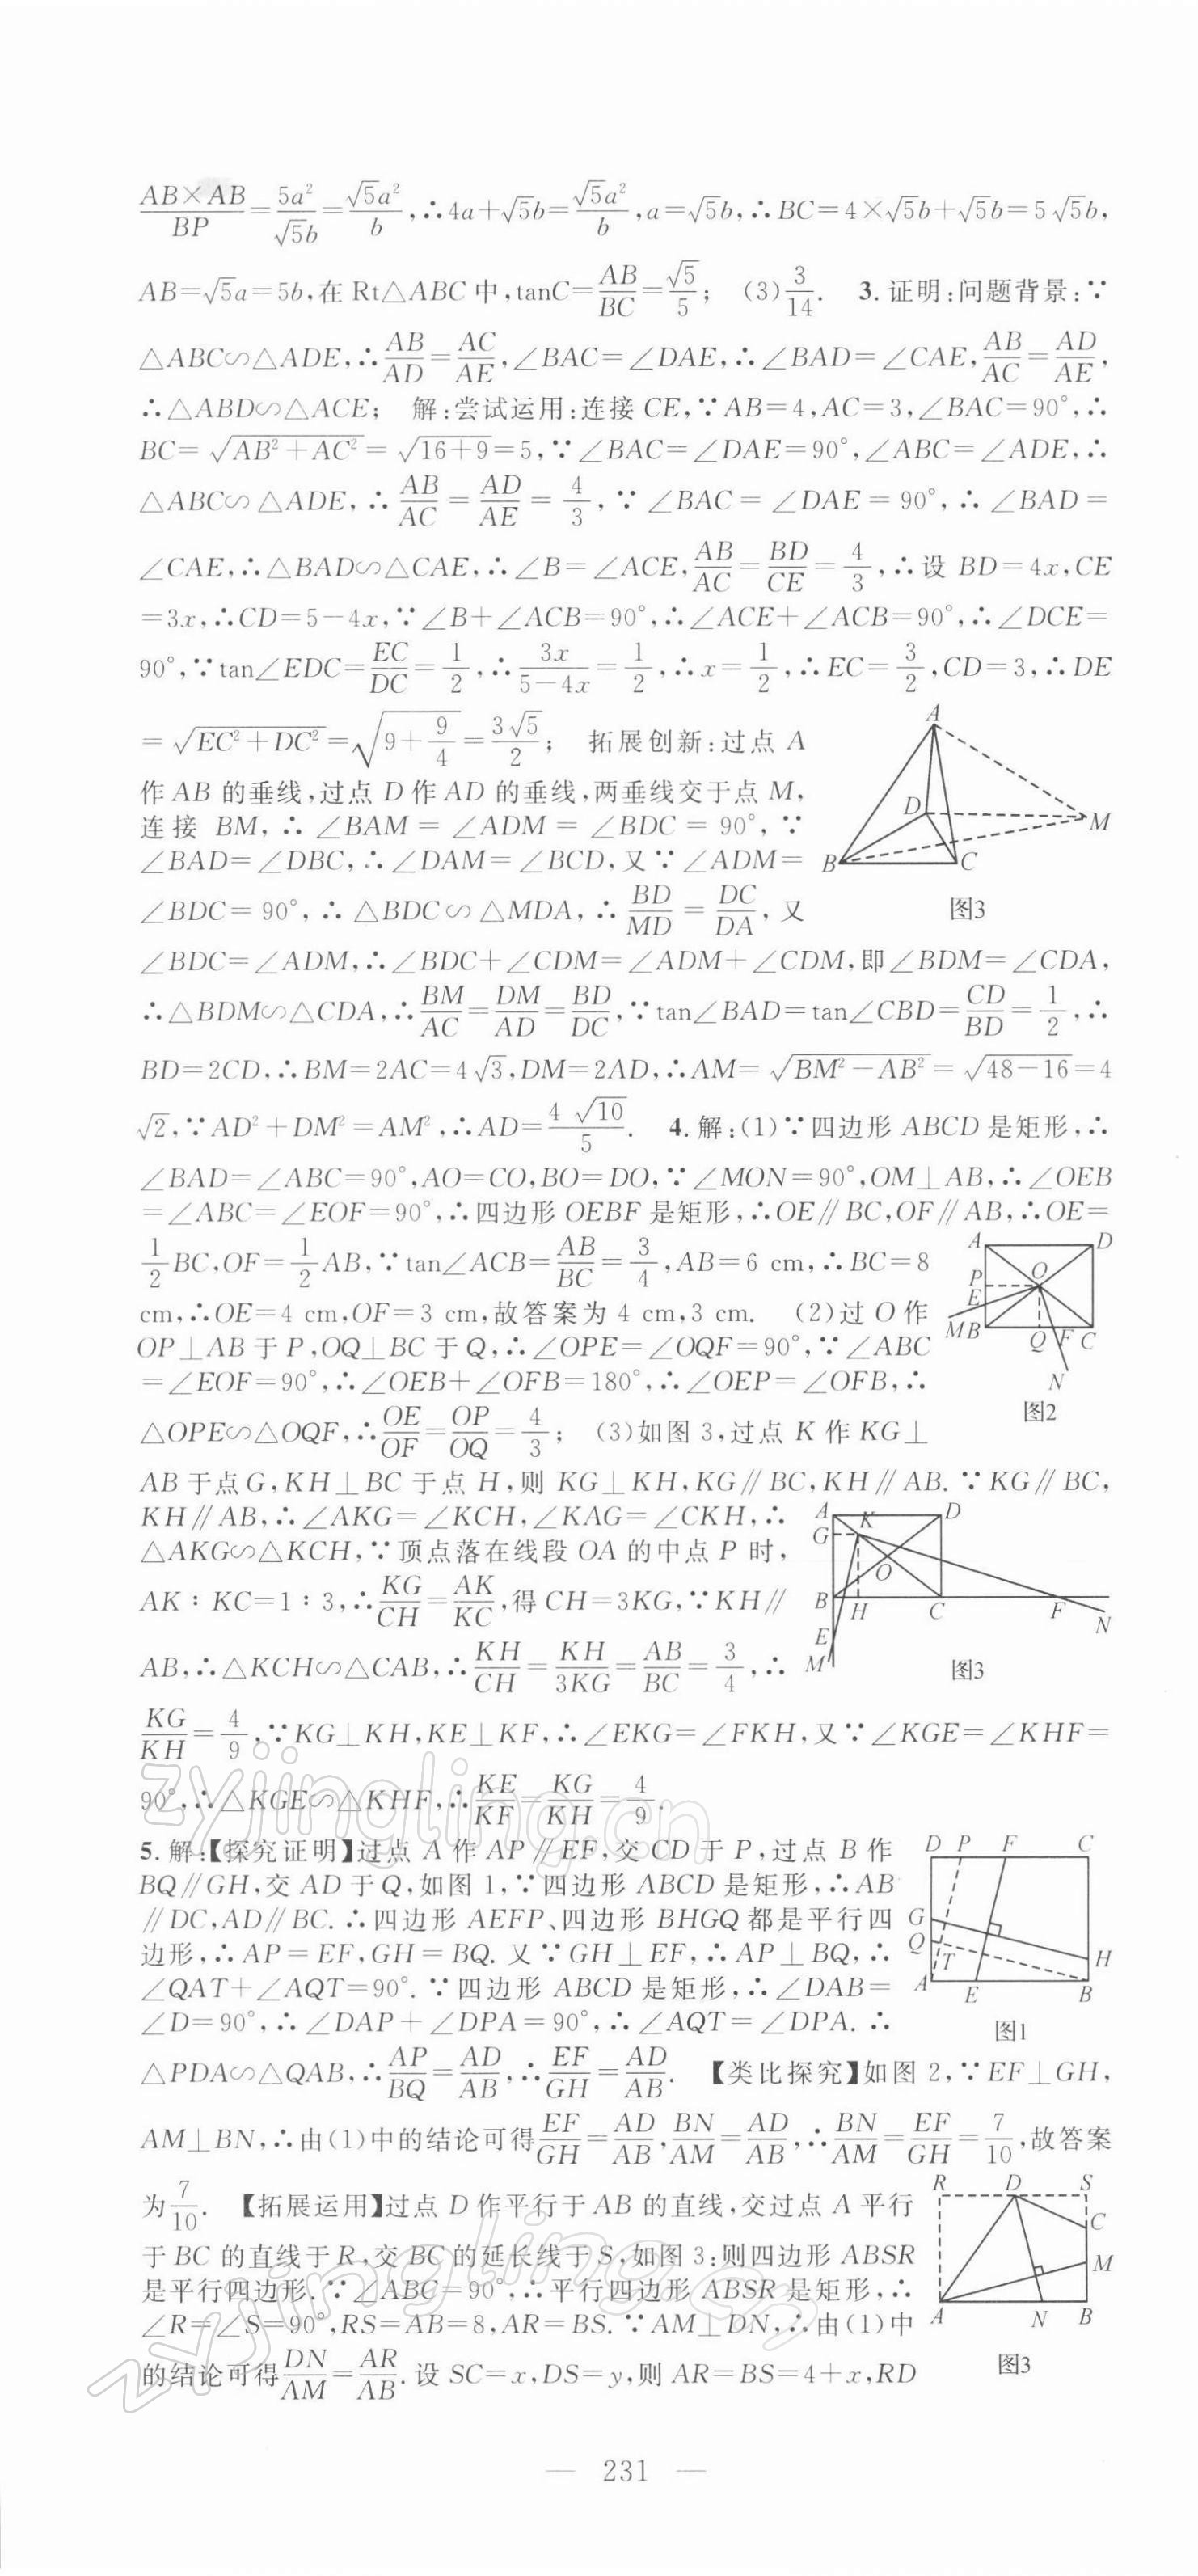 AB×AB/BP=5a²/√5b=√5a²/b,∴4a+√5b=√5a²/b,a=√5b,∴BC=4×√5b+√5b=5√5b,
AB=√5a=5b,在Rt△ABC中,tanC=AB/BC=√5/5; (3)3/14. 3.证明:问题背景:∵
△ABC∽△ADE,∴AB/AD=AC/AE,∠BAC=∠DAE,∴∠BAD=∠CAE,AB/AC=AD/AE,
∴△ABD∽△ACE; 解:尝试运用:连接CE,∵AB=4,AC=3,∠BAC=90°,∴
BC=√(AB²+AC²)=√(16+9)=5,∵∠BAC=∠DAE=90°,∠ABC=∠ADE,∴
△ABC∽△ADE,∴AB/AC=AD/AE=4/3,∵∠BAC=∠DAE=90°,∴∠BAD=
∠CAE,∴△BAD∽△CAE,∴∠B=∠ACE,AB/AC=BD/CE=4/3,∴设BD=4x,CE
=3x,∴CD=5-4x,∵∠B+∠ACB=90°,∴∠ACE+∠ACB=90°,∴∠DCE=
90°,∵tan∠EDC=EC/DC=1/2,∴3x/(5-4x)=1/2,∴x=1/2,∴EC=3/2,CD=3,∴DE
=√(EC²+DC²)=√(9+9/4)=3√5/2; 拓展创新:过点A
作AB的垂线,过点D作AD的垂线,两垂线交于点M,
连接BM,∴∠BAM=∠ADM=∠BDC=90°,∵
∠BAD=∠DBC,∴∠DAM=∠BCD,又∵∠ADM=
∠BDC=90°,∴△BDC∽△MDA,∴BD/MD=DC/DA,又
A
D
M
B
C
图3
∠BDC=∠ADM,∴∠BDC+∠CDM=∠ADM+∠CDM,即∠BDM=∠CDA,
∴△BDM∽△CDA,∴BM/AC=DM/AD=BD/DC,∵tan∠BAD=tan∠CBD=CD/BD=1/2,∴
BD=2CD,∴BM=2AC=4√3,DM=2AD,∴AM=√(BM²-AB²)=√(48-16)=4
√2,∵AD²+DM²=AM²,∴AD=4√10/5. 4.解:(1)∵四边形ABCD是矩形,∴
∠BAD=∠ABC=90°,AO=CO,BO=DO,∵∠MON=90°,OM⊥AB,∴∠OEB
=∠ABC=∠EOF=90°,∴四边形OEBF是矩形,∴OE∥BC,OF∥AB,∴OE=
1/2BC,OF=1/2AB,∵tan∠ACB=AB/BC=3/4,AB=6 cm,∴BC=8
cm,∴OE=4 cm,OF=3 cm,故答案为4 cm,3 cm. (2)过O作
OP⊥AB于P,OQ⊥BC于Q,∴∠OPE=∠OQF=90°,∵∠ABC
=∠EOF=90°,∴∠OEB+∠OFB=180°,∴∠OEP=∠OFB,∴
△OPE∽△OQF,∴OE/OF=OP/OQ=4/3; (3)如图3,过点K作KG⊥
A
D
P
O
E
M B
Q F C
N
图2
AB于点G,KH⊥BC于点H,则KG⊥KH,KG∥BC,KH∥AB.∵KG∥BC,
KH∥AB,∴∠AKG=∠KCH,∠KAG=∠CKH,∴
△AKG∽△KCH,∵顶点落在线段OA的中点P时,
AK∶KC=1∶3,∴KG/CH=AK/KC,得CH=3KG,∵KH∥
AB,∴△KCH∽△CAB,∴KH/CH=KH/3KG=AB/BC=3/4,∴
A K D
G
O
B H C F N
E
M
图3
KG/KH=4/9,∵KG⊥KH,KE⊥KF,∴∠EKG=∠FKH,又∵∠KGE=∠KHF=
90°,∴△KGE∽△KHF,∴KE/KF=KG/KH=4/9.
5.解:【探究证明】过点A作AP∥EF,交CD于P,过点B作
BQ∥GH,交AD于Q,如图1,∵四边形ABCD是矩形,∴AB
∥DC,AD∥BC.∴四边形AEFP、四边形BHGQ都是平行四
边形,∴AP=EF,GH=BQ.又∵GH⊥EF,∴AP⊥BQ,∴
∠QAT+∠AQT=90°.∵四边形ABCD是矩形,∴∠DAB=
∠D=90°,∴∠DAP+∠DPA=90°,∴∠AQT=∠DPA.∴
D P F C
G
Q
T
H
A E B
图1
△PDA∽△QAB,∴AP/BQ=AD/AB,∴EF/GH=AD/AB. 【类比探究】如图2,∵EF⊥GH,
AM⊥BN,∴由(1)中的结论可得EF/GH=AD/AB,BN/AM=AD/AB,∴BN/AM=EF/GH=7/10,故答案
为7/10. 【拓展运用】过点D作平行于AB的直线,交过点A平行
于BC的直线于R,交BC的延长线于S,如图3:则四边形ABSR
是平行四边形.∵∠ABC=90°,∴平行四边形ABSR是矩形,∴
∠R=∠S=90°,RS=AB=8,AR=BS.∵AM⊥DN,∴由(1)中
的结论可得DN/AM=AR/AB.设SC=x,DS=y,则AR=BS=4+x,RD
R D S
C
M
A N B
图3
zyjingling.cn
zyjingling.cn
— 231 —